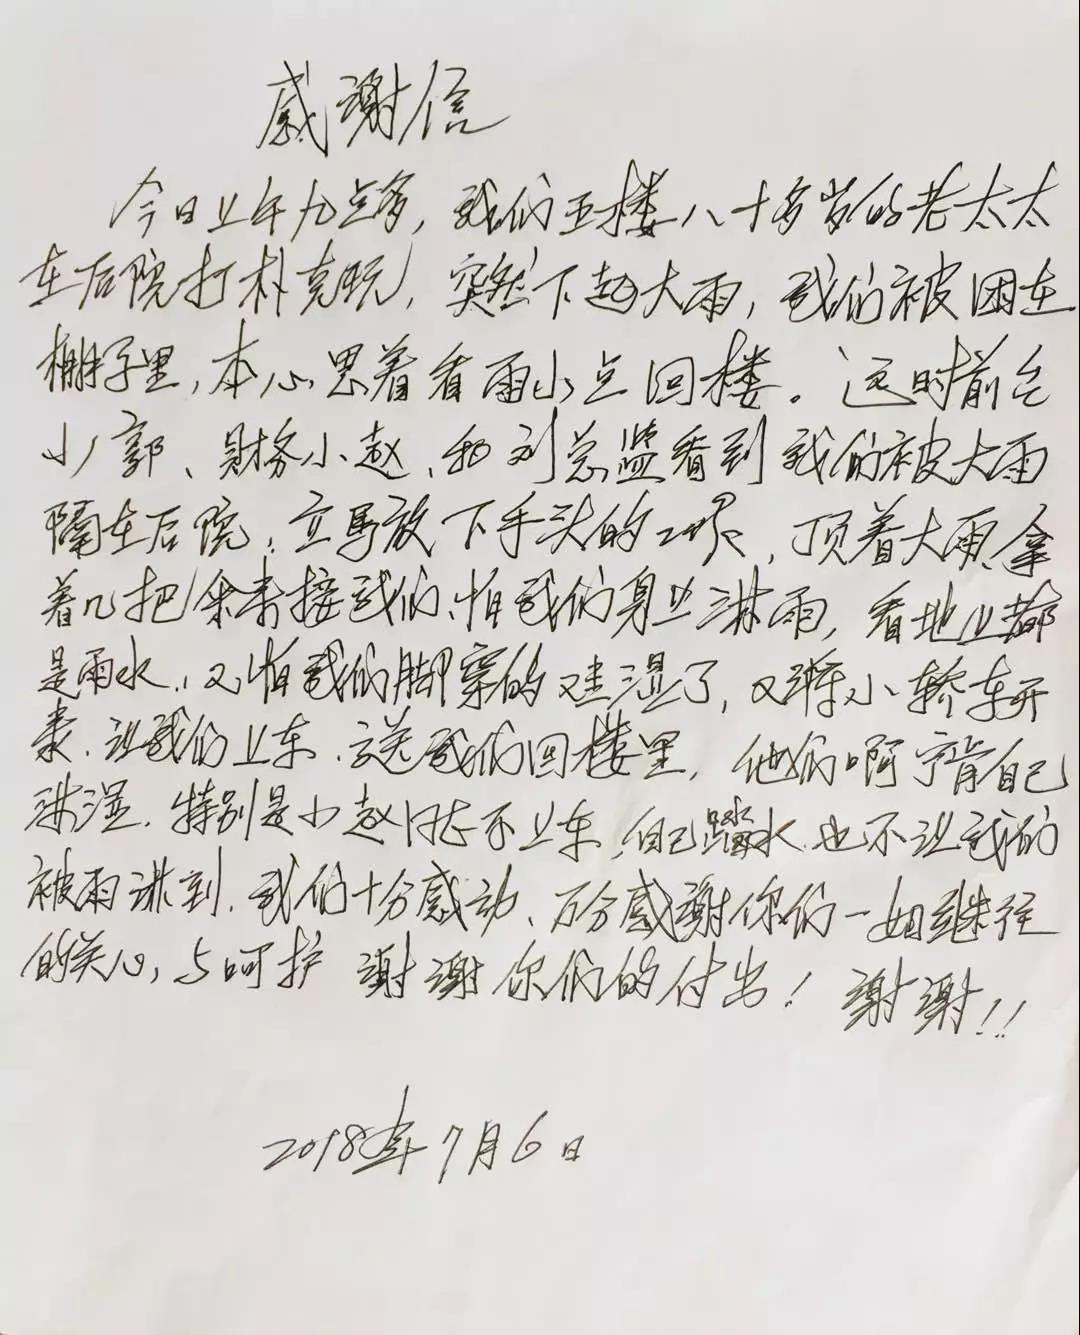 感谢信
今日上午九点多，我们五楼八十多岁的老太太
在后院打朴克玩，突然下起大雨，我们被困在
棚子里，本心思着看雨小点回楼。这时前台
小郭、财务小赵、和刘总监看到我们被大雨
隔在后院，立马放下手头的工作，顶着大雨，拿
着几把伞来接我们，怕我们身上淋雨，看地上都
是雨水，又怕我们脚穿的鞋湿了，又将小轿车开
来，让我们上车，送我们回楼里，他们啊宁肯自己
淋湿，特别是小赵同志不上车，自己踏水，也不让我们
被雨淋到，我们十分感动、万分感谢你们一如继往
的关心，与呵护 谢谢你们的付出！谢谢！！
2018年7月6日